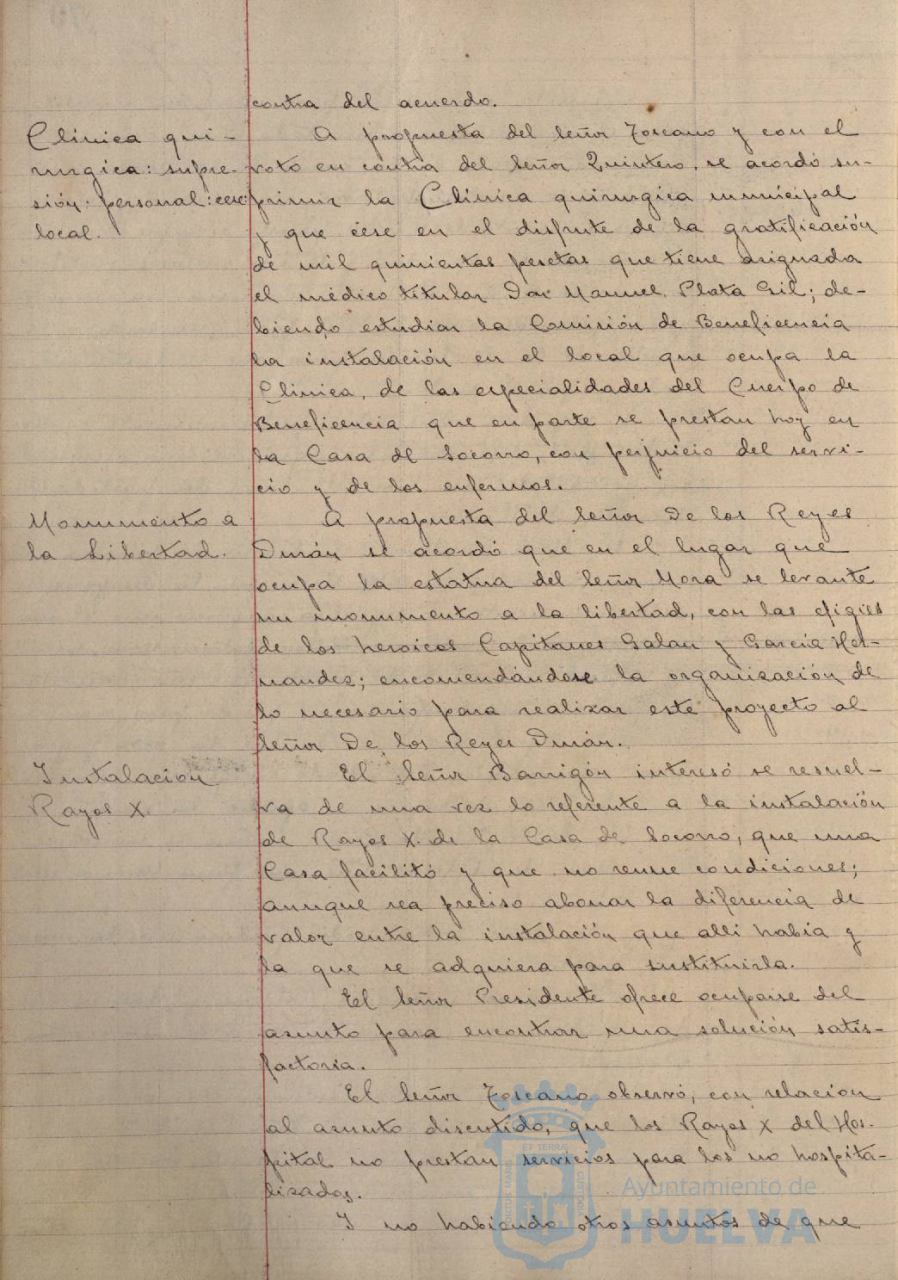 contra del acuerdo.
Clínica qui-
rurgica: supre-
sión: personal: cese:
local.
A propuesta del Señor Toscano y con el
voto en contra del Señor Quintero, se acordó su-
primir la Clínica quirurgica municipal
y que cese en el disfrute de la gratificación
de mil quinientas pesetas que tiene asignada
el médico titular Don Manuel Plata Gil; de-
biendo estudiar la Comisión de Beneficencia
la instalación en el local que ocupa la
Clinica, de las especialidades del Cuerpo de
Beneficencia que en parte se prestan hoy en
la Casa de Socorro, con perjuicio del servi-
cio y de los enfermos.
Monumento a
la Libertad.
A propuesta del Señor De los Reyes
Durán se acordó que en el lugar que
ocupa la estatua del Señor Mora se levante
un monumento a la libertad, con las efigies
de los heroicos Capitanes Galan y García Her-
nandez; encomendándose la organización de
lo necesario para realizar este proyecto al
Señor De los Reyes Durán.
Instalación
Rayos X.
El Señor Barrigón interesó se resuel-
va de una vez lo referente a la instalación
de Rayos X. de la Casa de Socorro, que una
Casa facilitó y que no reune condiciones;
aunque sea preciso abonar la diferencia de
valor entre la instalación que alli había y
la que se adquiera para sustituirla.
El Señor Presidente ofrece ocuparse del
asunto para encontrar una solución satis-
factoria.
El Señor Toscano observó, con relacion
al asunto discutido, que los Rayos X del Hos-
pital no prestan servicios para los no hospita-
lizados.
Y no habiendo otros asuntos de que
Ayuntamiento de
HUELVA